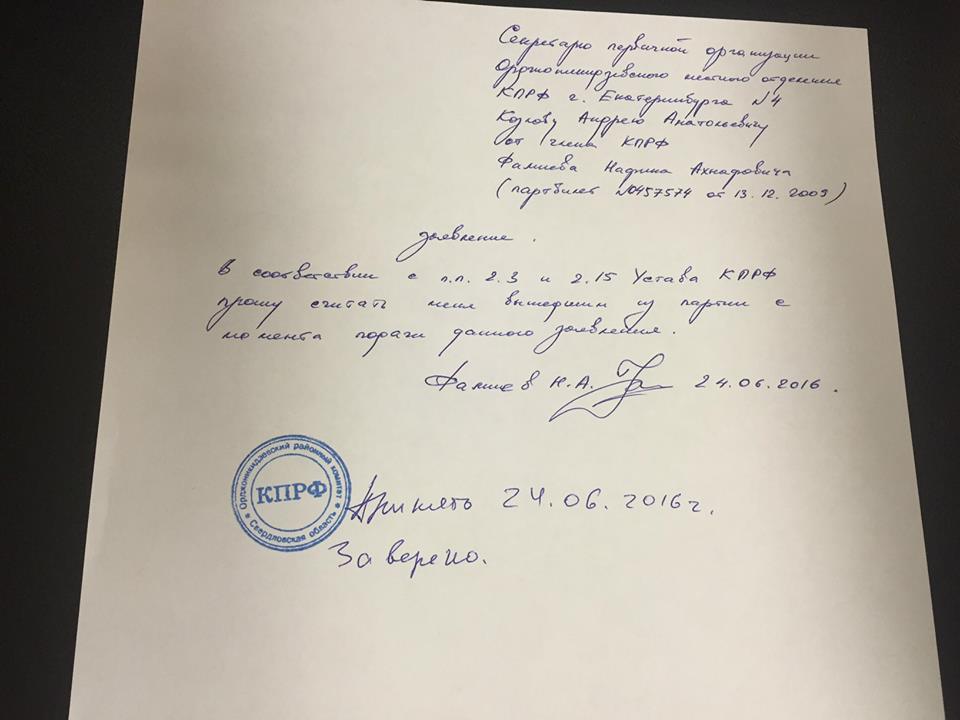 Секретарю первичной организации
Орджоникидзевского местного отделения
КПРФ г. Екатеринбурга №4
Козлову Андрею Анатольевичу
от члена КПРФ
Фамиева Надина Ахнафовича
(партбилет №0457574 от 13.12.2009)
заявление.
В соответствии с п.п. 2.3 и 2.15 Устава КПРФ
прошу считать меня вышедшим из партии с
момента подачи данного заявления.
Фамиев Н.А. 24.06.2016.
Орджоникидзевский районный комитет
КПРФ
Свердловская область
Принято 24.06.2016г.
Заверено.